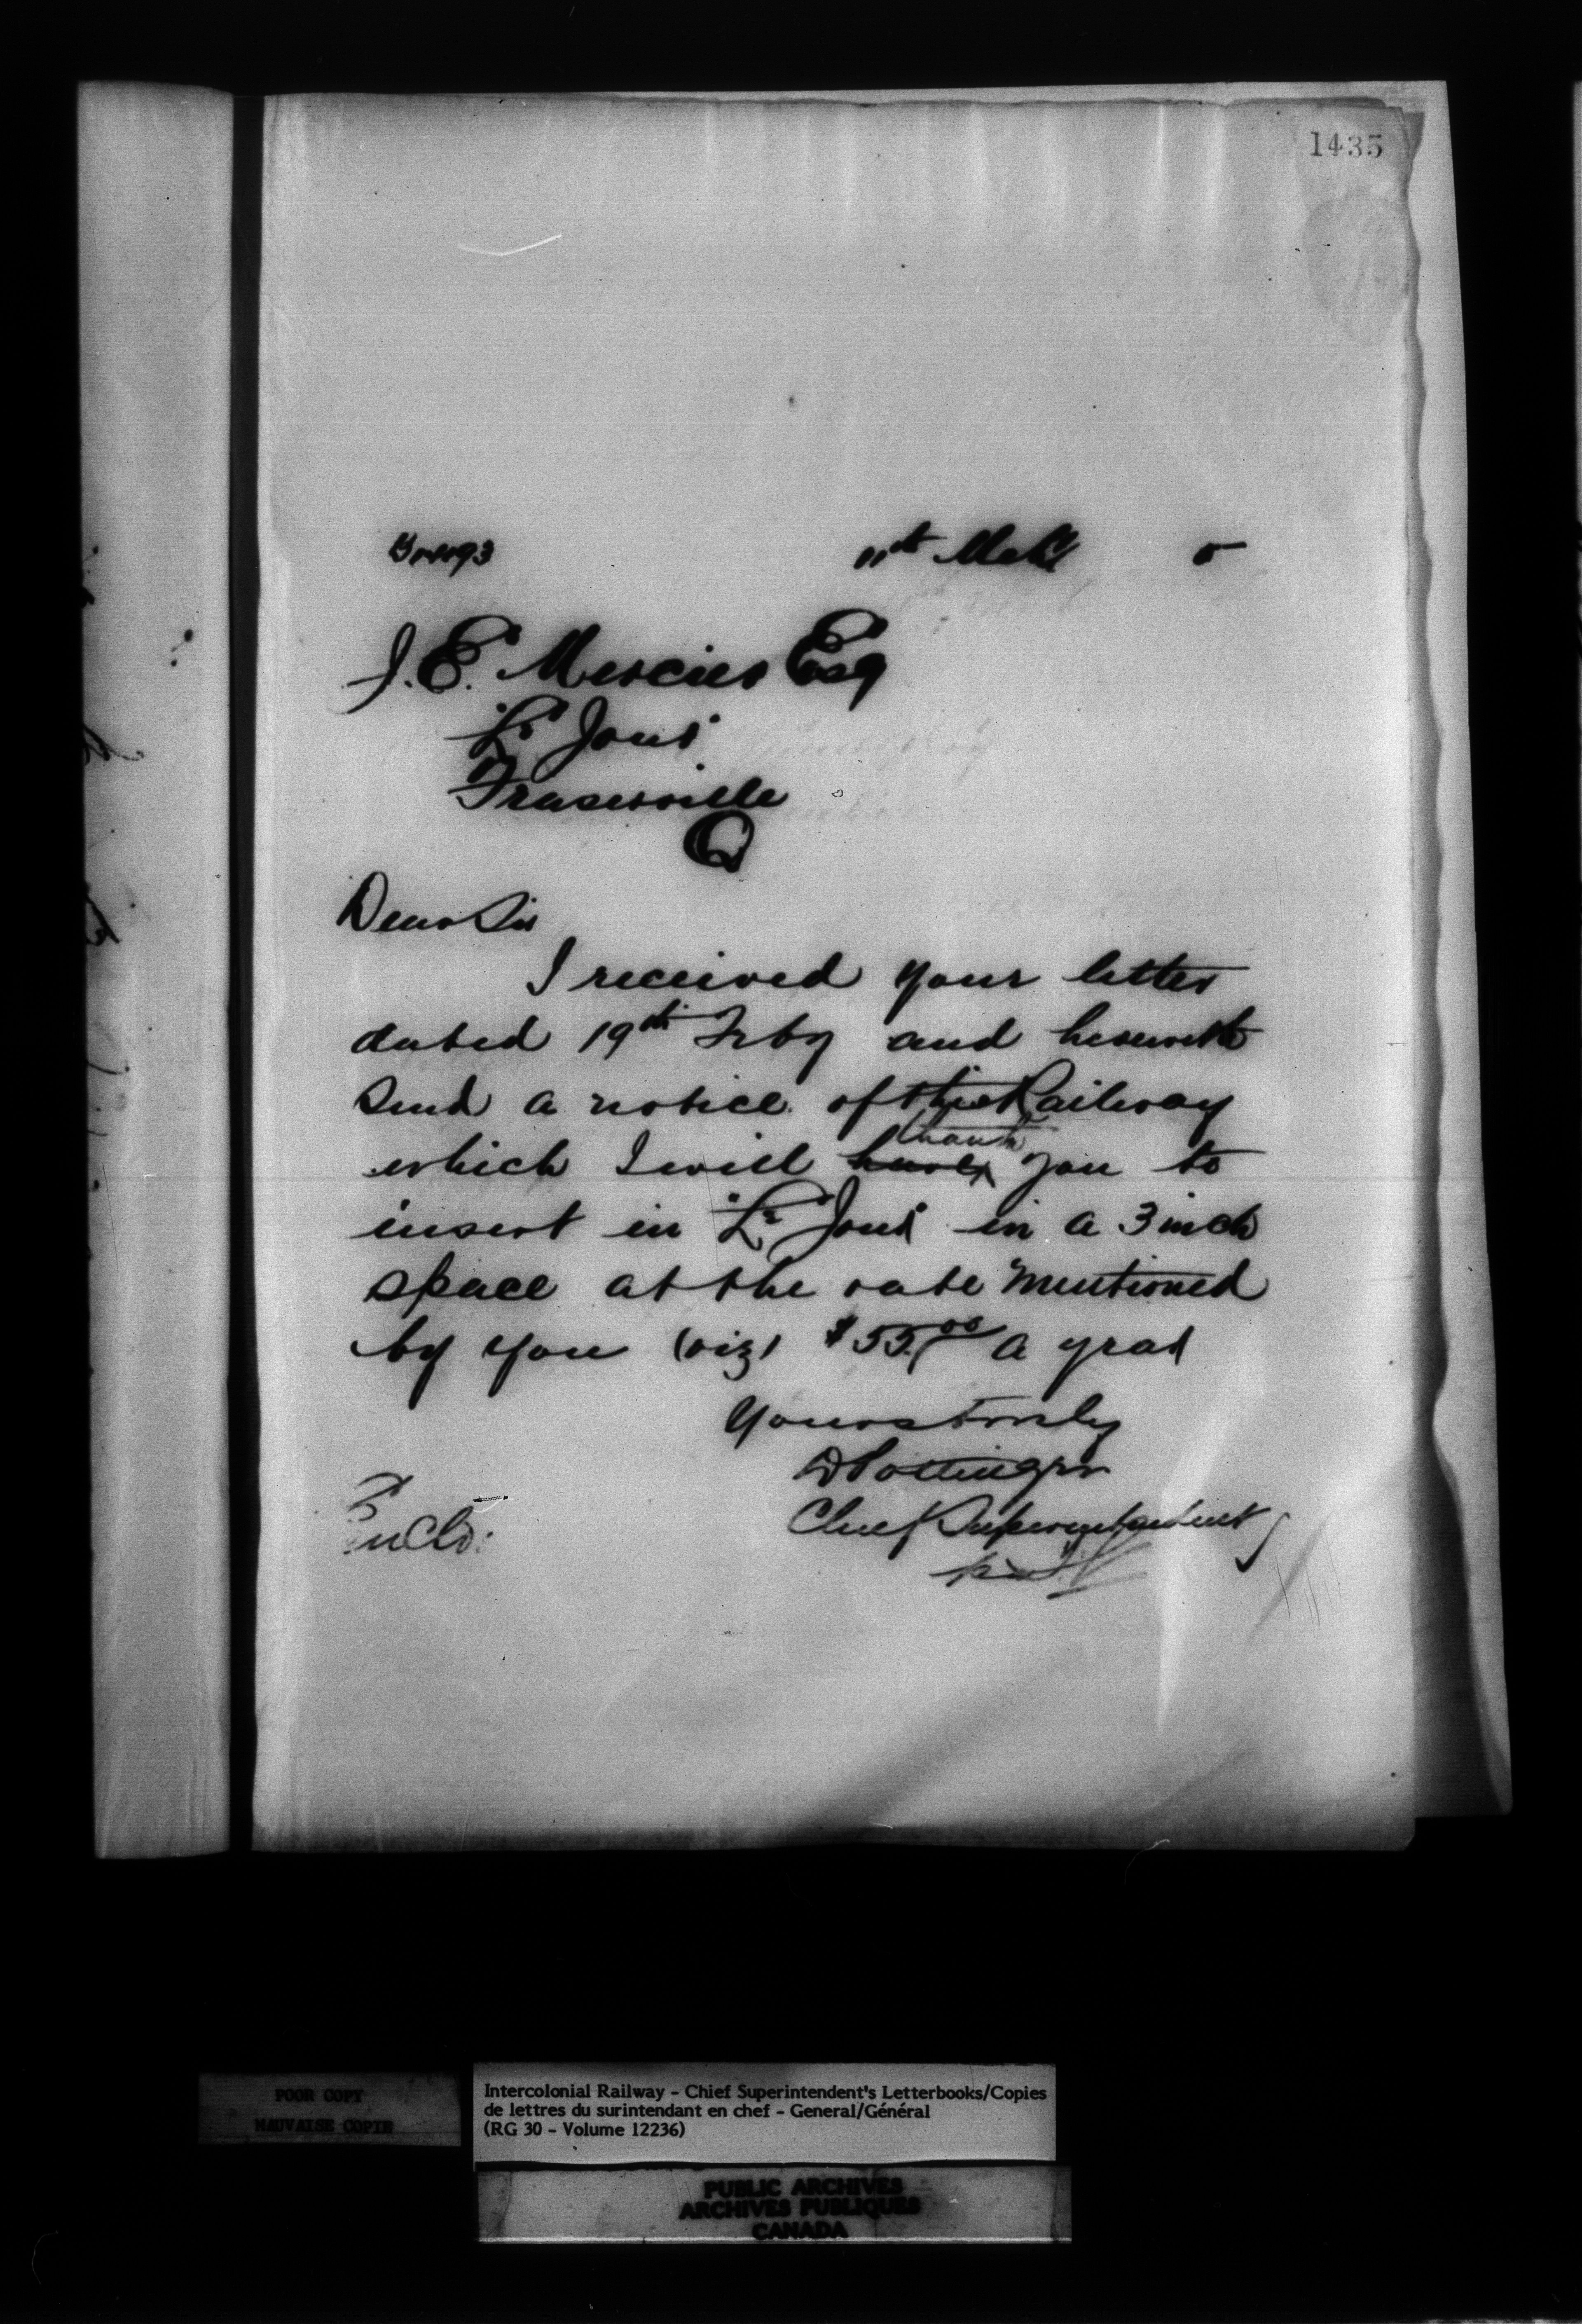 1435
11th Mch 5
J. E. Mercier Esq
"Le Jour"
Fraserville
Q
Dear Sir
I received your letter
dated 19th Feby and herewith
send a notice of this Railway
thank
which I will have you to
insert in "Le Jour" in a 3 inch
space at the rate mentioned
by you (viz) $55.00 a year
Yours truly
D Pottinger
Chief Superintendent
Enclo:
POOR COPY
MAUVAISE COPIE
Intercolonial Railway - Chief Superintendent's Letterbooks/Copies
de lettres du surintendant en chef - General/Général
(RG 30 - Volume 12236)
PUBLIC ARCHIVES
ARCHIVES PUBLIQUES
CANADA